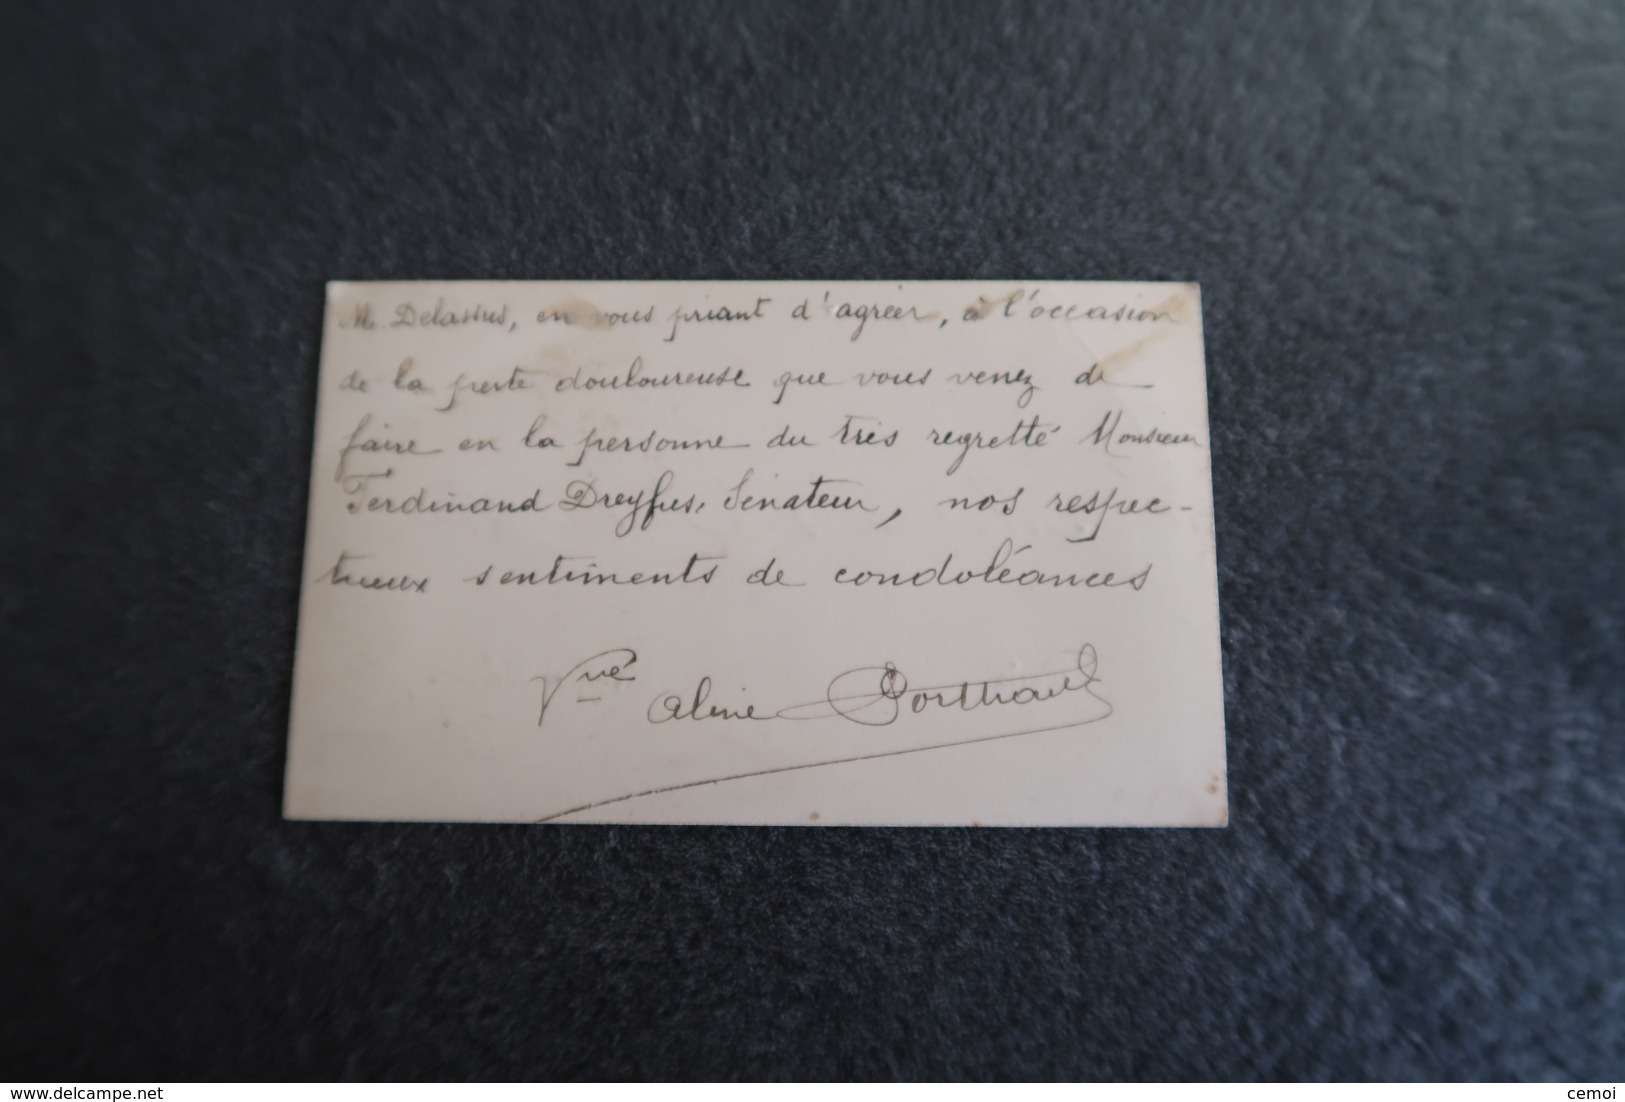 M. Delassus, en vous priant d'agréer, à l'occasion
de la perte douloureuse que vous venez de
faire en la personne du très regretté Monsieur
Ferdinand Dreyfus, Sénateur, nos respec-
tueux sentiments de condoléances
Vve Aline
www.delcampe.net
cemoi